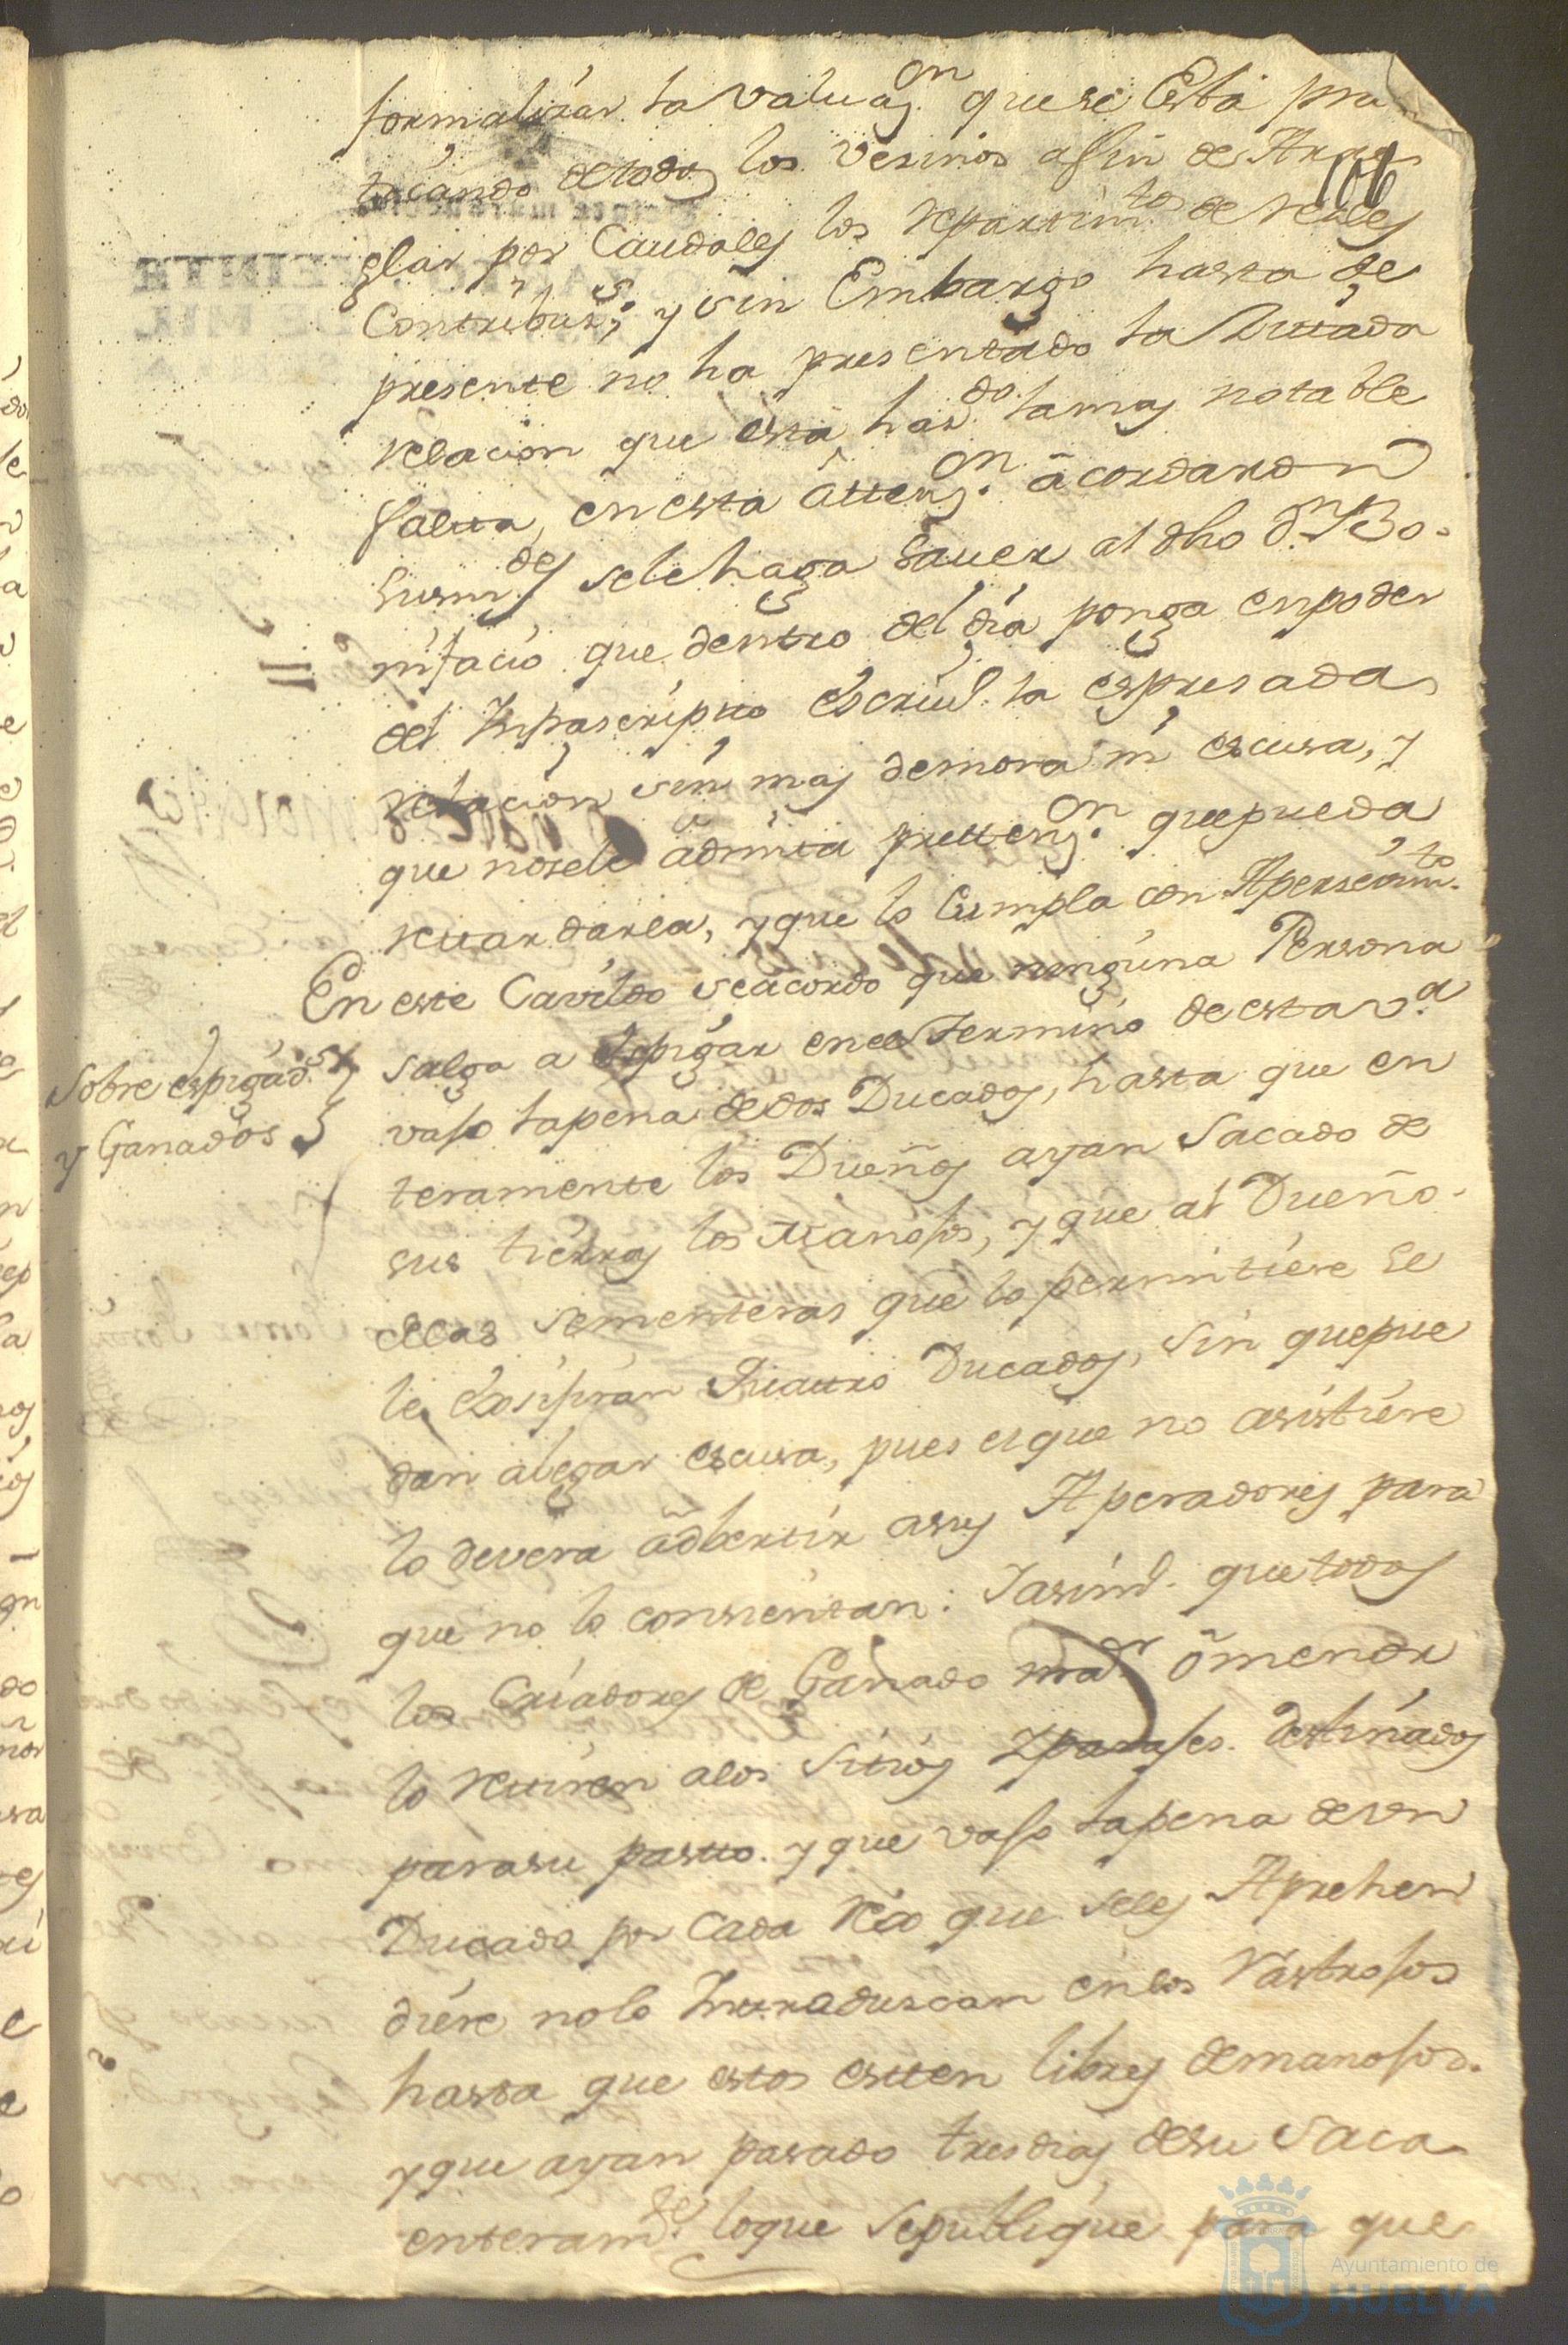 formalizar la valuaz.on que se Està prac
ticando de todos los vezinos a fin de Arre
106
glar por Caudales los repartim.tos de reales
Contribuz.s; y sin Embargo hasta de
presente no ha presentado la Zitada
relacion que está haz.do la mas notable
falta, en esta âttenz.on acordaron
sus m.des se le haga Sauer al dho d.n Bo-
nifacio que dentro del dia ponga en poder
del Infrascripto escriu.o la espresada
relacion sin mas demora ni escusa, y
que no se le admita prettenz.on que pueda
retardarla, y que lo Cumpla con Aperseuim.to
En este Cavildo se acordo que ninguna Persona
Sobre espigad.s
y Ganados
salga a Espigar en el termino de esta v.a
vajo la pena de dos Ducados, hasta que en
teramente los Dueños ayan Sacado de
sus tierras los Manojos, y que al Dueño
de las sementeras que lo permitiere se
le Exsijiran Quatro Ducados, sin que pue
dan alegar escusa, pues el que no asistiere
lo devera adbertir a sus Aperadores para
que no lo consientan: Y asim.o que todos
los Criadores de Ganado maor ô menor
lo retiren a los Sitios y parajes destinados
para su pasto. y que vajo la pena de un
Ducado por Cada Res que se les Aprehen
diere no lo Introduscan en los Rastrojos
hasta que estos esten libres de manojos
y que ayan pasado tres dias de su Saca
enteram.te lo que se publique para que
Ayuntamiento de
HUELVA